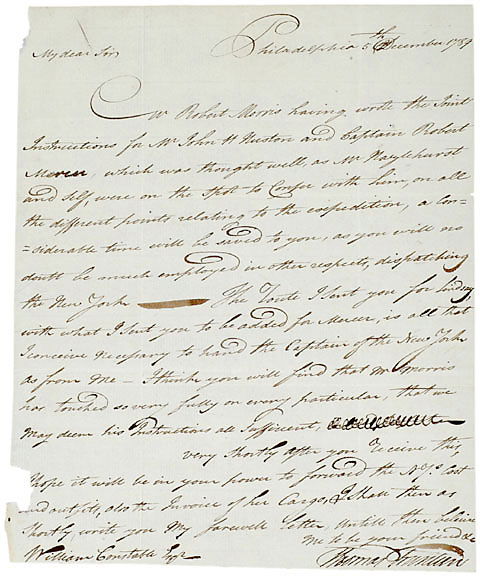 Philadelphia 5th December 1789
My dear Sir
Mr Robert Morris having wrote the Joint
Instructions for Mr John H Huston and Captain Robert
Mercer, which was thought well, as Mr Hazlehurst
and self, were on the spot to Confer with him, on all
the different points relating to the expedition, a con=
=siderable time will be saved to you, as you will no
doubt be much employed in other respects, dispatching
the New York The Route I sent you for Lindsay,
with what I sent you to be added for Mercer, is all that
I conceive Necessary to hand the Captain of the New York
as from me – I think you will find that Mr Morris
has touched so very fully on every particular, that we
may deem his Instructions all Sufficient,
very shortly after you Receive this,
I hope it will be in your power to forward the N.Y.s Cost
and outfits, also the Invoice of her Cargo, I shall then as
shortly write you My farewell Letter, Untill then believe
me to be your friend &c
William Constable Esqr
Thomas